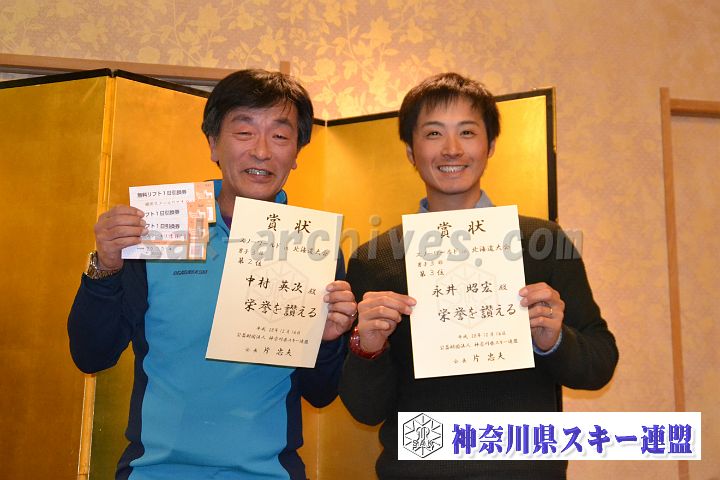 無料リフト1日引換券
リフト1日引換券
リフト1日引換券
賞状
スノーワールド in 北海道大会
男子3部
第2位
中村英次殿
栄誉を讃える
平成28年12月16日
公益財団法人 神奈川県スキー連盟
会長 片忠夫
賞状
スノーワールド in 北海道大会
男子2部
第3位
永井昭宏殿
栄誉を讃える
平成28年12月16日
公益財団法人 神奈川県スキー連盟
会長 片忠夫
sak-archives.com
神奈川県スキー連盟